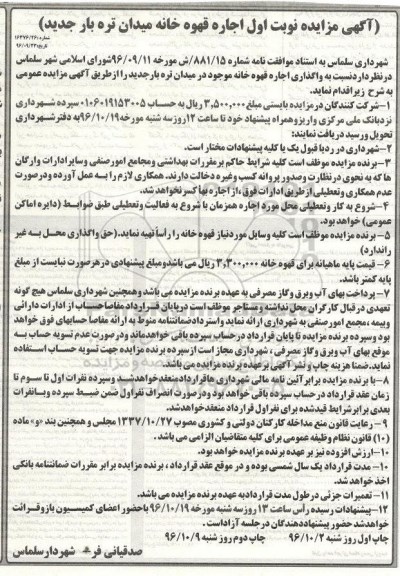 (آگهی مزایده نوبت اول اجاره قهوه خانه میدان تره بار جدید)
شماره:۱۶۳۷۶/۲۶
تاریخ:۹۶/۰۹/۲۳
شهرداری سلماس به استناد موافقت نامه شماره ۸۸۱/۱۵/ش مورخه ۹۶/۰۹/۱۱ شورای اسلامی شهر سلماس
در نظر دارد نسبت به واگذاری اجاره قهوه خانه موجود در میدان تره بارجدید را از طریق آگهی مزایده عمومی
به شرح زیر اقدام نماید.
۱-شرکت کنندگان در مزایده بایستی مبلغ ۳,۵۰۰,۰۰۰ ریال به حساب ۰۱۰۶۰۱۹۱۵۳۰۰۵ سپرده شهرداری
نزد بانک ملی مرکزی واریز و همراه پیشنهاد خود تا ساعت ۱۲ روز سه شنبه مورخه ۹۶/۱۰/۱۹ به دفتر شهرداری
تحویل و رسید دریافت نمایند:
۲-شهرداری در رد یا قبول یک یا کلیه پیشنهادات مختار است.
۳-برنده مزایده موظف است کلیه شرایط حاکم بر مقررات بهداشتی و مجامع امور صنفی و سایر ادارات و ارگان
ها که به نحوی در نظارت و صدور پروانه کسب و غیره دخالت دارند. همکاری لازم را به عمل آورده و در صورت
عدم همکاری و تعطیلی از طریق ادارات فوق، از اجاره بها کسر نخواهد شد.
۴-شروع به کار و تعطیلی محل مورد اجاره همزمان با شروع به فعالیت و تعطیلی طبق ضوابط (دایره اماکن
عمومی) خواهد بود.
۵- برنده مزایده موظف است کلیه وسایل مورد نیاز قهوه خانه را رأساً تهیه نماید. (حق واگذاری محل به غیر
را ندارد)
۶- قیمت پایه ماهیانه برای قهوه خانه ۳,۳۰۰,۰۰۰ ریال می باشد و مبلغ پیشنهادی در هر صورت نبایست از مبلغ
پایه کمتر باشد.
۷- پرداخت بهای آب و برق و گاز مصرفی به عهده برنده مزایده می باشد و همچنین شهرداری سلماس هیچ گونه
تعهدی در قبال کارگران محل نداشته و مستاجر موظف است در پایان قرارداد مفاصاحساب از ادارات دارائی
و بیمه، مجمع امور صنفی به شهرداری ارائه نماید و استرداد ضمانتنامه منوط به ارائه مفاصا حسابهای فوق خواهد
بود و سپرده برنده مزایده تا پایان قرارداد در حساب سپرده باقی خواهد ماند و در صورت عدم تسویه حساب به
موقع بهای آب و برق و گاز مصرفی، شهرداری مجاز است از سپرده برنده مزایده جهت تسویه حساب استفاده
نماید. ضمناً هزینه چاپ و نشر آگهی بر عهده برنده مزایده می باشد.
۸-با برنده مزایده برابر آئین نامه مالی شهرداری ها قرارداد منعقد خواهد شد و سپرده نفرات اول تا سوم تا
زمان عقد قرارداد در حساب سپرده باقی خواهد بود و در صورت انصراف نفر اول ضمن ضبط سپرده وبا نفرات
بعدی برابر شرایط قید شده برای نفر اول قرارداد منعقد خواهد شد.
۹- رعایت قانون منع مداخله کارکنان دولتی و کشوری مصوب ۱۳۳۷/۱۰/۲۷ مجلس و همچنین بند «و» ماده
(۱۰) قانون نظام وظیفه عمومی برای کلیه متقاضیان الزامی می باشد.
۱۰-ارزش افزوده نیز بر عهده برنده مزایده خواهد بود.
۱۰-مدت قرارداد یک سال شمسی بوده و در موقع عقد قرارداد، برنده مزایده برابر مقررات ضمانتنامه بانکی
اخذ خواهد شد.
۱۱-تعمیرات جزئی در طول مدت قرارداد به عهده برنده مزایده می باشد.
۱۲-پیشنهادات رسیده رأس ساعت ۱۳ روز سه شنبه مورخه ۹۶/۱۰/۱۹ با حضور اعضای کمیسیون باز و قرائت
خواهد شد حضور پیشنهاد دهندگان در جلسه آزاد است.
چاپ اول روز شنبه ۹۶/۱۰/۲ چاپ دوم روز شنبه ۹۶/۱۰/۹
صدقیانی فر شهردار سلماس